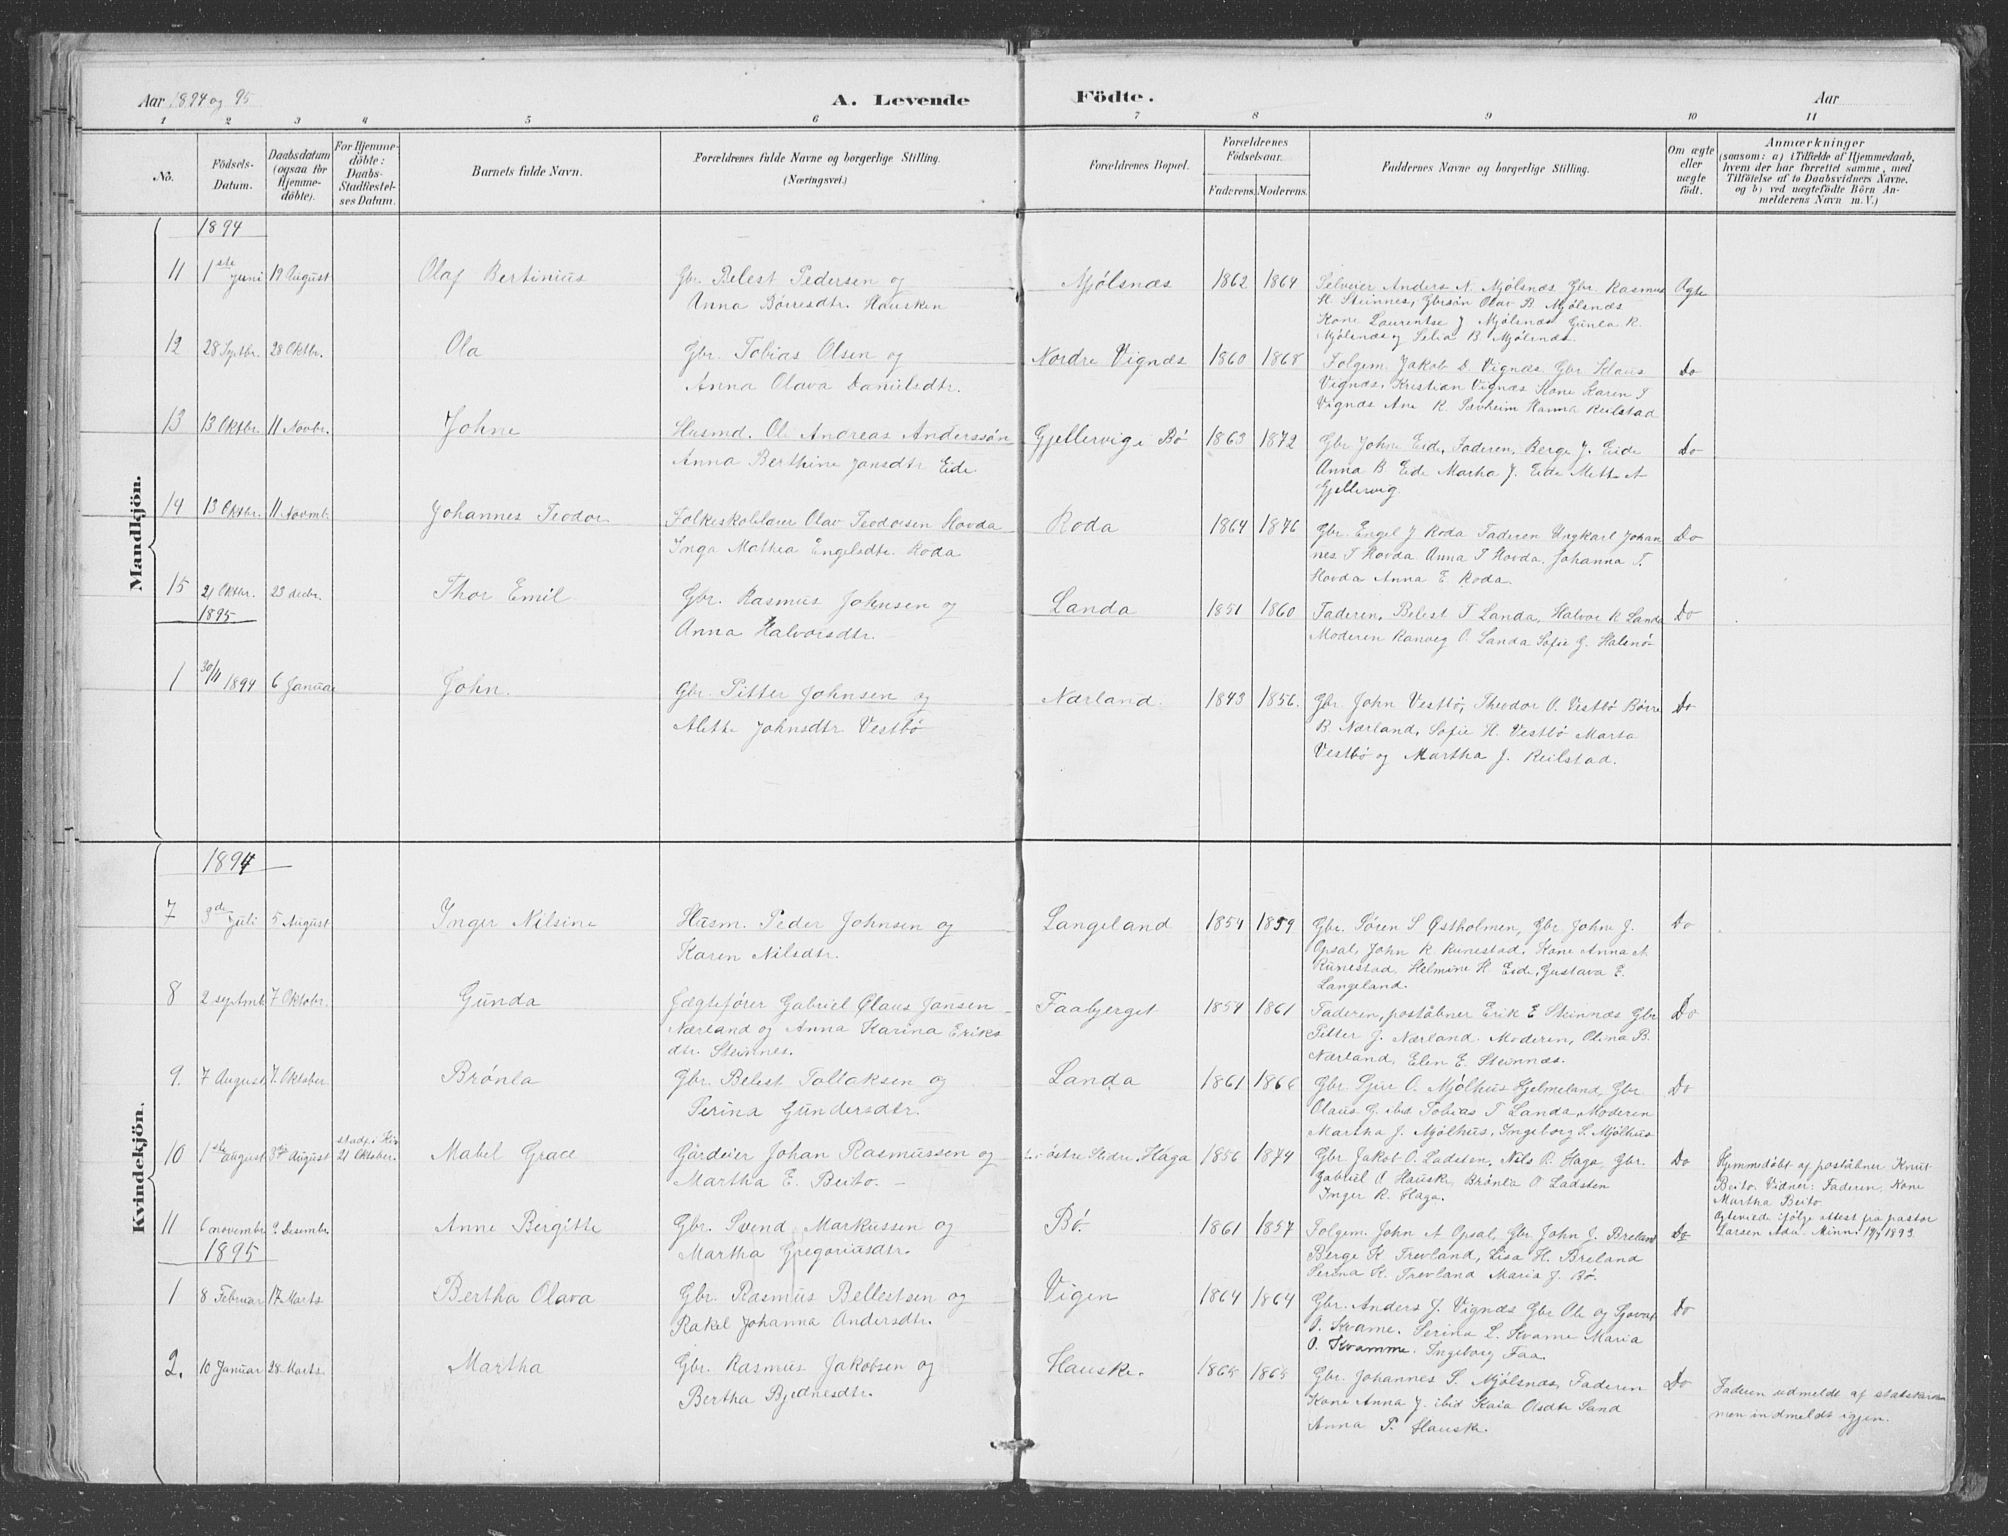 Aar 1894 og 95
A. Levende Födte.
Aar
1 2 3 4 5 6 7 8 9 10 11
No.
Födsels-Datum.
Daabsdatum (ogsaa for Hjemmedöbte).
For Hjemmedöbte: Daabs-Stadfæstelses Datum.
Barnets fulde Navn.
Forældrenes fulde Navne og borgerlige Stilling.
(Næringsvei.)
Forældrenes Bopæl.
Forældrenes Födselsaar.
Faderens. Moderens.
Faddernes Navne og borgerlige Stilling.
Om ægte eller uægte födt.
Anmærkninger
(saasom: a) i Tilfælde af Hjemmedaab, hvem der har forrettet samme, med Tilföielse af to Daabsvidners Navne, og b) ved uægtefödte Börn Anmelderens Navn m. V.)
Mandkjön.
1894
11 1ste Juni 19 August Olaf Bertinius Gbr. Belest Pedersen og Mjølsnæs 1862 1864 Selveier Anders N. Mjølsnæs Gbr. Rasmus Ægte
Anna Børresdtr. Hausken H. Steinnes, Gbrsøn Olav B. Mjølsnæs
Kone Laurentse J Mjølsnæs Gunla R.
Mjølsnæs og Selia B. Mjølsnæs.
12 28 Septbr. 28 Oktbr. Ola Gbr. Tobias Olsen og Nordre Vignæs 1860 1868 Folgem. Jakob D. Vignæs Gbr. Klaus Do
Anna Olava Danielsdtr. Vignæs, Kristian Vignæs Kone Karen T
Vignæs Ane R. Sævheim Hanna Reilstad
13 13 Oktbr. 11 Novbr. Johne Husmd. Ole Andreas Anderssøn Gjellervig i Bø 1863 1872 Gbr. Johne Eide, Faderen, Berge J. Eide Do
Anna Berthine Jonsdtr Eide Anna B Eide Martha J. Eide Mette A
Gjellervig.
14 13 Oktbr. 11 Novmb. Johannes Teodor Folkeskolelærer Olav Teodorsen Hovda Roda 1864 1876 Gbr. Engel J Roda Faderen Ungkarl Johan Do
Inga Mathea Engelsdtr. Roda nes T Hovda Anna T Hovda. Johanna T.
Hovda Anna E. Roda.
15 21 Oktbr. 23 decbr. Thor Emil Gbr. Rasmus Johnsen og Landa 1851 1860 Faderen, Belest T Landa, Halvor R Landa Do
1895 Anna Halvorsdtr. Moderen Ranveg O. Landa Sofie G. Halsnø
1 30/11 1894 6 Januar John. Gbr. Pitter Johnsen og Nærland. 1843 1856. Gbr. John Vestbø, Theodor O. Vestbø Børre Do
Alette Johnsdtr Vestbø B. Nærland, Sofie H. Vestbø Marta
Vestbø og Martha J. Reilstad.
Kvindekjön.
1894
7 3de Juli 5 August Inger Nilsine Husm. Peder Johnsen og Langeland 1854 1859 Gbr. Søren S Østholmen, Gbr. Johne J. Do
Karen Nilsdtr. Opsal, John R. Runestad. Kone Anna A
Runestad, Helmine H. Eide, Gustava E.
Langeland.
8 2 septmb. 7 Oktobr. Gunda Jægtefører Gabriel Olaus Jansen Faabjerget 1854 1861 Faderen, poståbner Erik E Steinnæs Gbr Do
Nærland og Anna Karina Eriks Pitter J. Nærland. Moderen, Olina B.
dtr. Steinnes. Nærland, Elen E. Steinnæs.
9. 7 August 7. Oktober Brønla Gbr. Belest Tollaksen og Landa 1861 1866 Gbr. Sjur O. Mjølhus Hjelmeland, Gbr. Do
Serina Gundersdtr. Olaus G. ibid Tobias T Landa, Moderen
Martha J. Mjølhus, Ingeborg S. Mjølhus
10 1ste august 3die August 21 Oktober. Mabel Grace Gårdeier Johan Rasmussen og østre Slidre, Haga 1856 1874 Gbr Jakob O. Ladsten, Nils R. Haga, Gbr. Do Hjemmedøbt af poståbner Knut
Martha E. Beito. Gabriel O Hauske, Brønla O Ladsten Beito. Vidner: Faderen, Kone
Inger R. Haga. Martha Beito
11 6 november 9. Desember Anne Bergitte Gbr. Svend Markussen og Bø 1861 1857 Folgem. John A Opsal, Gbr. John J. Breland Do Ægteviede ifølge attest fra pastor
1895 Martha Gregoriasdtr. Berge K Trevland, Lisa H. Breland Larsen Ada Minn. 1893
Serina K. Trevland Maria J. Bø.
1 8 Februar 17 Marts Bertha Olava Gbr. Rasmus Bellestsen og Vigen 1864 1864 Gbr. Anders J. Vignæs Gbr Ole og Do
Rakel Johanna Andersdtr. O. Kvame. Serina L. Kvame Maria
O. Kvamme. Ingeborg Faa.
2. 10 Januar 28 Marts. Martha Gbr. Rasmus Jakobsen og Hauske. 1865 1865 Gbr. Johannes S. Mjølsnæs, Faderen Do Faderen udmeldt af statskirken
Bertha Bjednesdtr. Kone Anna J. ibid Kaia Olsdtr Sand men indmeldt igjen.
Anna P. Hauske.